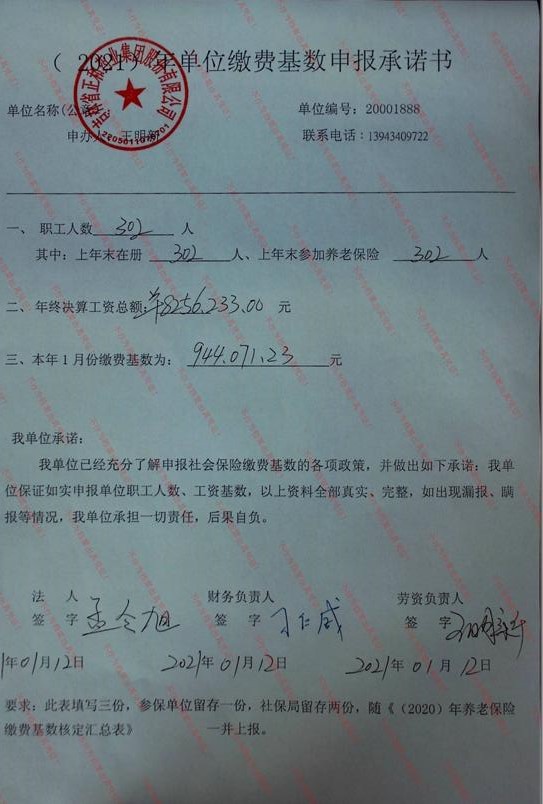 （ 2021 ）年单位缴费基数申报承诺书
单位名称(公章
单位编号：20001888
申办人 王明新
联系电话：13943409722
2205011010701
一、 职工人数 302 人
其中：上年末在册 302 人、上年末参加养老保险 302 人
二、年终决算工资总额:￥8256233.00 元
三、本年 1 月份缴费基数为： 944.071.23 元
我单位承诺：
我单位已经充分了解申报社会保险缴费基数的各项政策，并做出如下承诺：我单
位保证如实申报单位职工人数、工资基数，以上资料全部真实、完整，如出现漏报、瞒
报等情况，我单位承担一切责任，后果自负。
法 人 财务负责人 劳资负责人
签 字 孟令旭 签 字 签 字
年01月12日 2021年01月12日 2021年01月12日
要求：此表填写三份，参保单位留存一份，社保局留存两份，随《（2020）年养老保险
缴费基数核定汇总表》 一并上报。